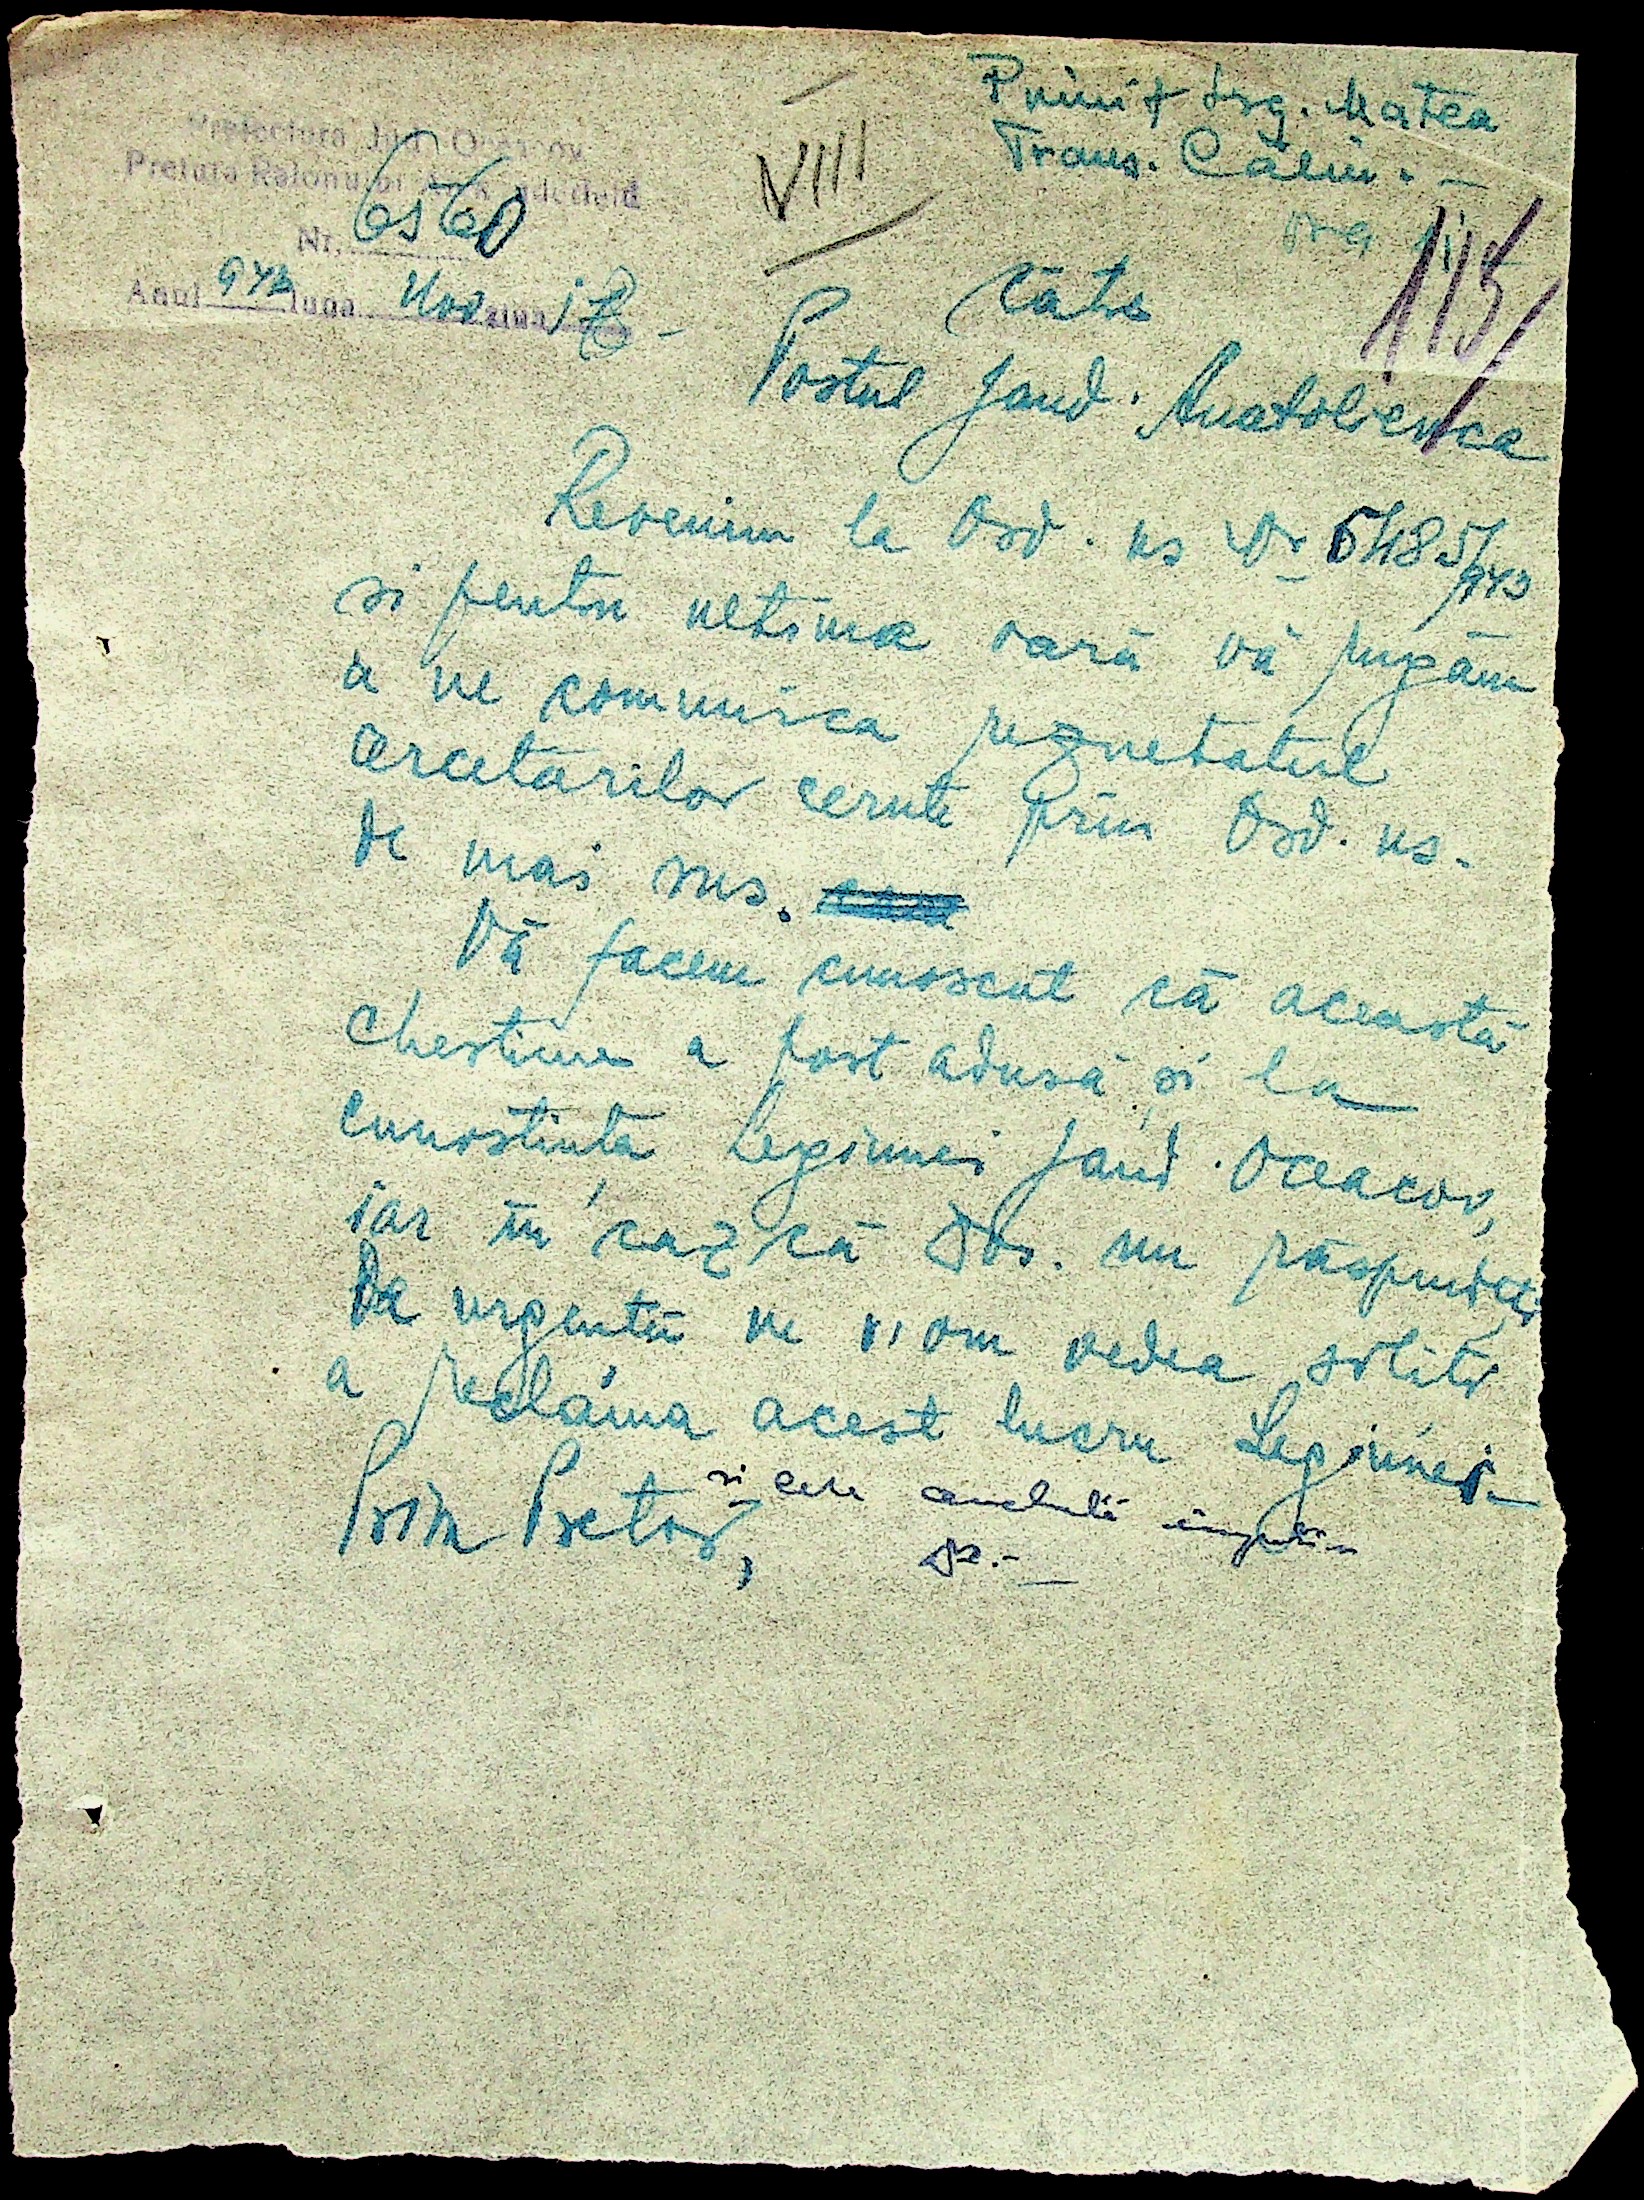 Primit Srg. Matea
Trans. Călin.-
ora
Prefectura Jud. Oceacov
Pretura Raionului
Nr. 6560
VIII
115
Anul 942 luna Nov ziua
Către
Postul Jand. Anatolienca
Revenim la Ord. ns Nr 5485/942
si pentru ultima oară vă rugăm
a ne comunica rezultatul
cercetărilor cerute prin Ord. ns.
de mai sus.
Vă facem cunoscut că această
chestiune a fost adusă și la
cunostința Legiunei Jand. Oceacov,
iar în caz că Dvs. nu răspundeți
de urgență ne vom vedea siliți
a reclama acest lucru Legiunei.-
si cere anchetă
Prim Pretor,